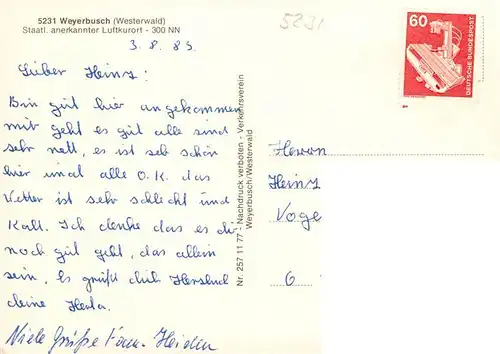 5231 Weyerbusch (Westerwald)
Staatl. anerkannter Luftkurort - 300 NN
5231
3. 8. 83
Lieber Heinz:
Bin gut hier angekommen
mir geht es gut alle sind
sehr nett, es ist seh schön
hier und alle O.K. das
Wetter ist sehr schlecht und
Kalt. Ich denke das es dir
noch gut geht, das allein
sein. Es grüßt dich Herzlich
deine Herta.
Viele Grüße Fam. Heiden
Nr. 257 11 77 - Nachdruck verboten - Verkehrsverein
Weyerbusch/Westerwald
60
DEUTSCHE BUNDESPOST
Herrn
Heinz
Voge
6